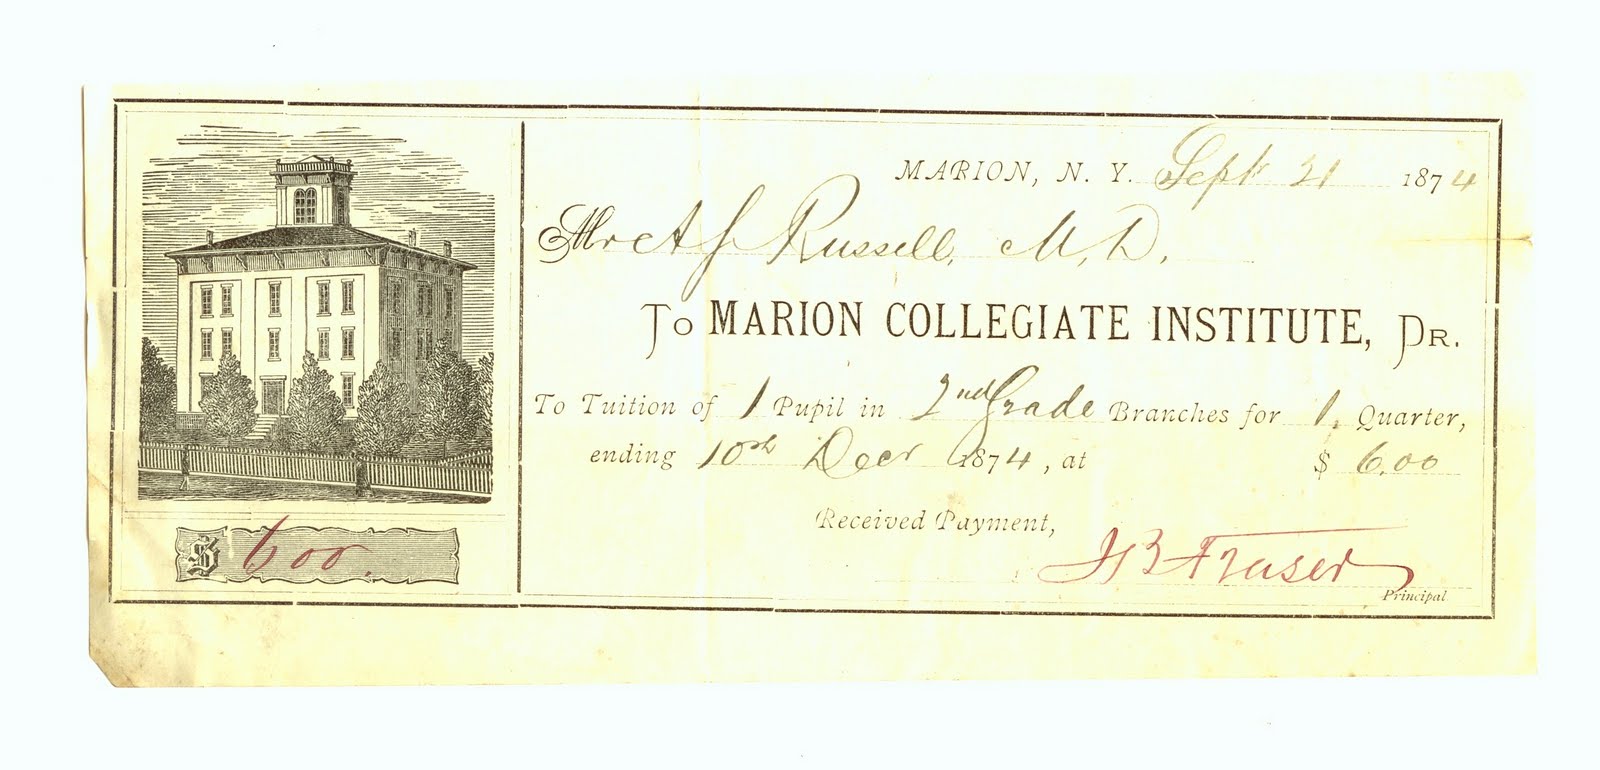 MARION, N. Y. Sept 21 1874
Mr A J Russell, M, D.
To MARION COLLEGIATE INSTITUTE, DR.
To Tuition of 1 Pupil in 2nd Grade Branches for 1, Quarter,
ending 10th Decr 1874, at $ 6,00
Received Payment,
$ 6 00. Fraser
Principal